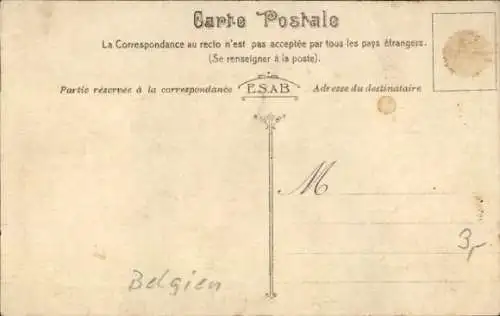 Carte Postale
La Correspondance au recto n'est pas acceptée par tous les pays étrangers.
(Se renseigner à la poste).
Partie réservée à la correspondance E.S.A.B Adresse du destinataire
M
3,-
Belgien